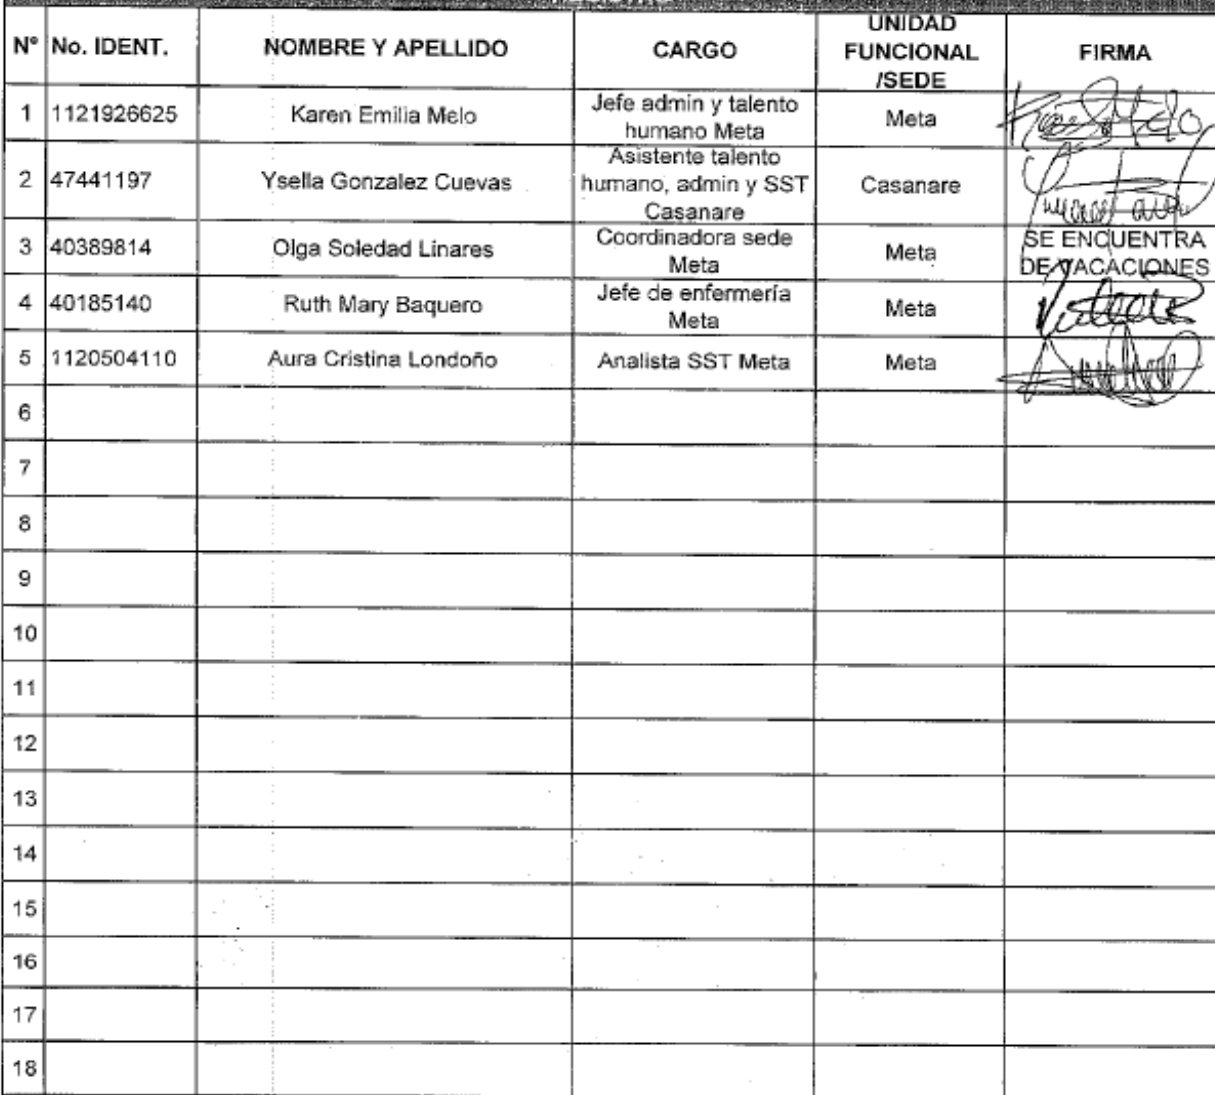 Nº No. IDENT. NOMBRE Y APELLIDO CARGO UNIDAD FUNCIONAL /SEDE FIRMA
1 1121926625 Karen Emilia Melo Jefe admin y talento humano Meta Meta
2 47441197 Ysella Gonzalez Cuevas Asistente talento humano, admin y SST Casanare Casanare
3 40389814 Olga Soledad Linares Coordinadora sede Meta Meta SE ENCUENTRA DE VACACIONES
4 40185140 Ruth Mary Baquero Jefe de enfermería Meta Meta
5 1120504110 Aura Cristina Londoño Analista SST Meta Meta
6
7
8
9
10
11
12
13
14
15
16
17
18